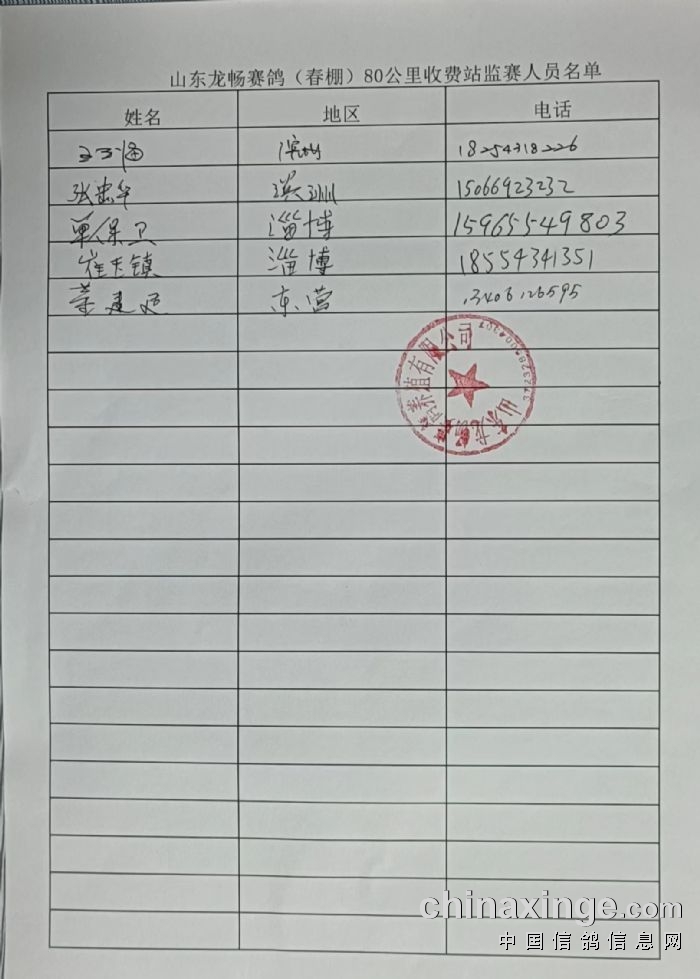 山东龙畅赛鸽（春棚）80公里收费站监赛人员名单
姓名 地区 电话
滨州 18254318226
张忠华 滨州 15066923232
单保卫 淄博 15965549803
崔玉镇 淄博 18554341351
东营 3406126595
山东龙畅 养殖有限公司
chinaxinge.com
中国信鸽信息网